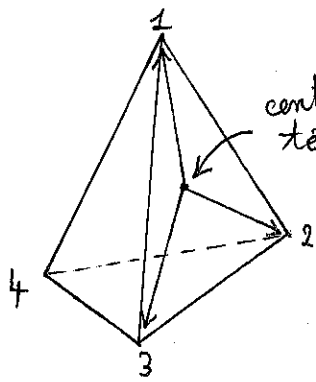 1
cent
té
2
4
3